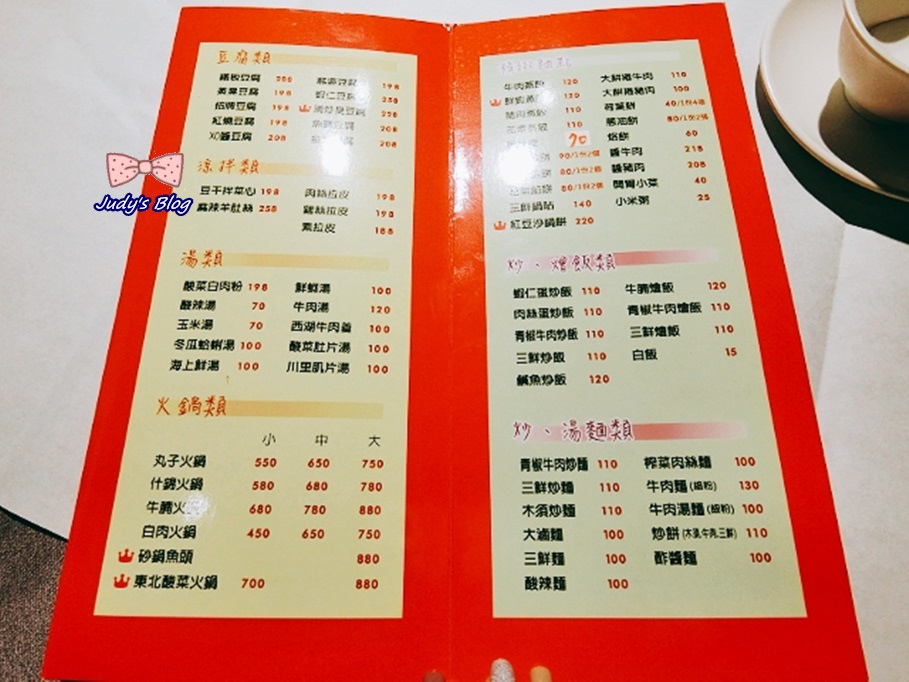 豆腐類
鐵板豆腐 288 麻婆豆腐 198
蔥燒豆腐 198 蝦仁豆腐 258
招牌豆腐 198 清炒臭豆腐 228
紅燒豆腐 198 208
XO醬豆腐 208 208
涼拌類
豆干拌菜心 198 肉絲拉皮 198
麻辣羊肚絲 258 雞絲拉皮 198
素拉皮 188
Judy's Blog
湯類
酸菜白肉粉 198 鮮蝦湯 100
酸辣湯 70 牛肉湯 120
玉米湯 70 西湖牛肉羹 100
冬瓜蛤蜊湯 100 酸菜肚片湯 100
海上鮮湯 100 川里肌片湯 100
火鍋類
小 中 大
丸子火鍋 550 650 750
什錦火鍋 580 680 780
牛腩火鍋 680 780 880
白肉火鍋 450 650 750
砂鍋魚頭 880
東北酸菜火鍋 700 880
牛肉蒸餃 120 大餅捲牛肉 110
鮮蝦蒸餃 大餅捲豬肉 100
豬肉蒸餃 110 荷葉餅 40/1份4張
110 蔥油餅 80/1份2張
70 烙餅 60
90/1份2個 醬牛肉 218
80/1份2個 醬豬肉 208
韭菜餡餅 80/1份2個 開胃小菜 40
三鮮鍋貼 140 小米粥 25
紅豆沙鍋餅 220
炒、燴飯類
蝦仁蛋炒飯 110 牛腩燴飯 120
肉絲蛋炒飯 110 青椒牛肉燴飯 110
青椒牛肉炒飯 110 三鮮燴飯 110
三鮮炒飯 110 白飯 15
鹹魚炒飯 120
炒、湯麵類
青椒牛肉炒麵 110 榨菜肉絲麵 100
三鮮炒麵 110 牛肉麵(細粉) 130
木須炒麵 110 牛肉湯麵(細粉) 100
大滷麵 100 炒餅(木須,牛肉,三鮮) 110
三鮮麵 100 酢醬麵 100
酸辣麵 100